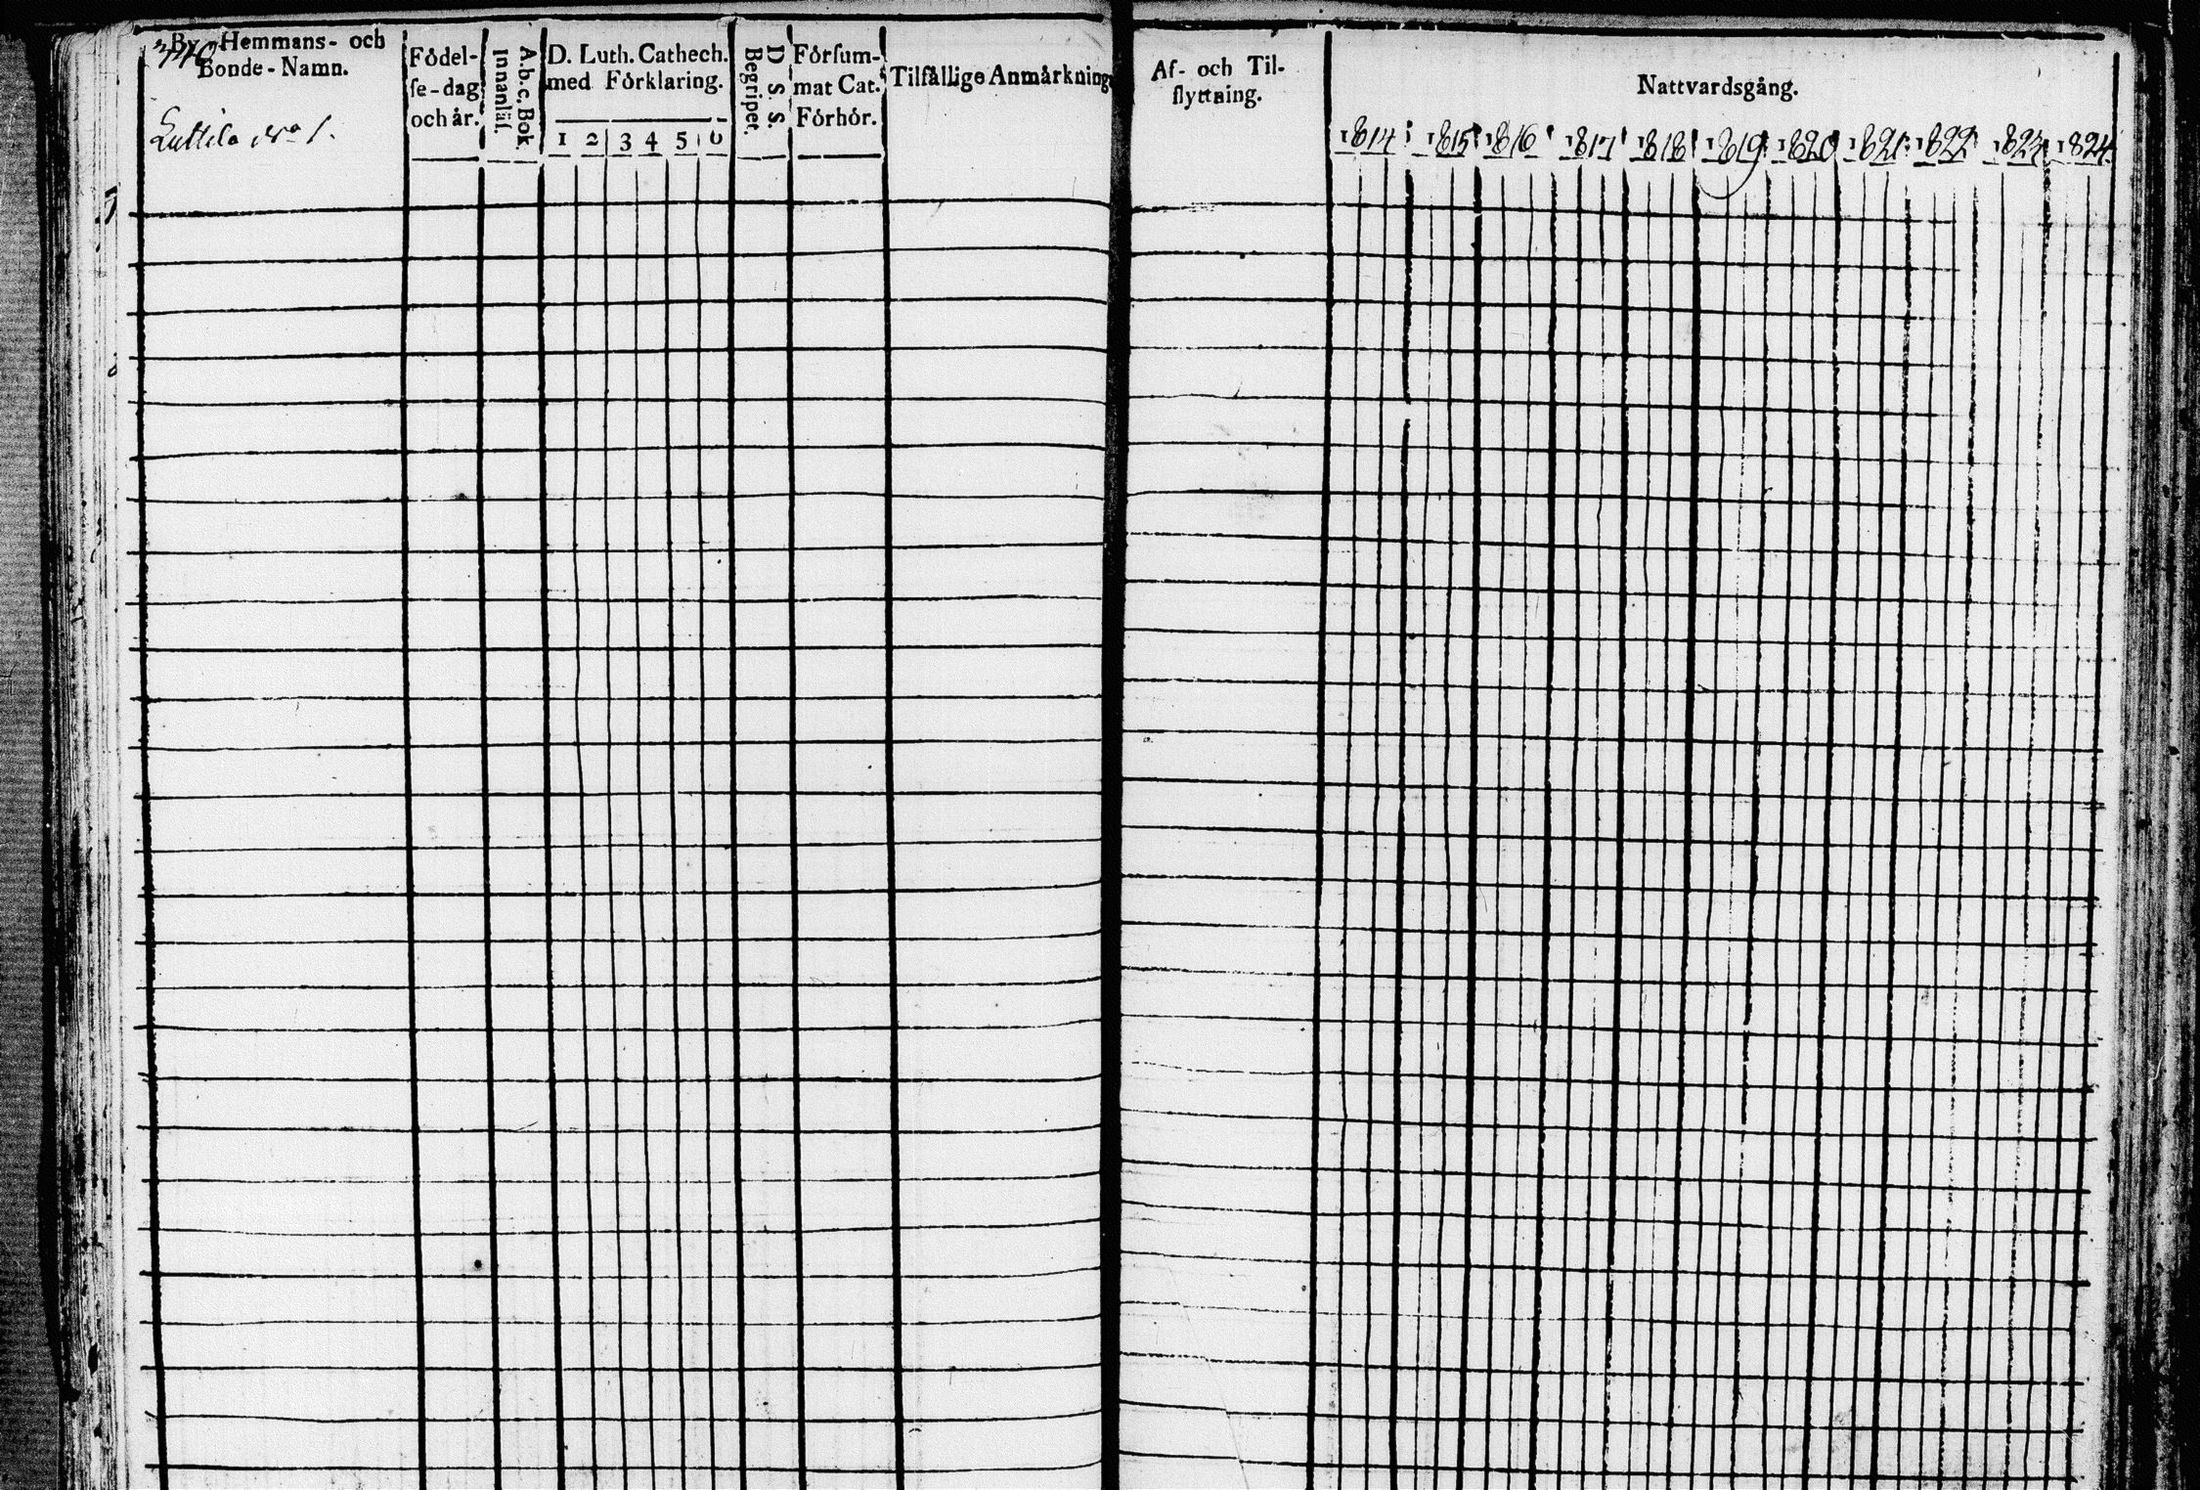 340
By- Hemmans- och
Bonde-Namn.
Födel-
ſe-dag
och år.
A.b.c. Bok
Innanläſ.
D. Luth. Cathech.
med Förklaring.
1 2 3 4 5 6
D. S. S.
Begripet.
Förſum-
mat Cat.
Förhör.
Tilfällige Anmärkning
Af- och Til-
flyttning.
Nattvardsgång.
1814 1815 1816 1817 1818 1819 1820 1821 1822 1823 1824
No 1.